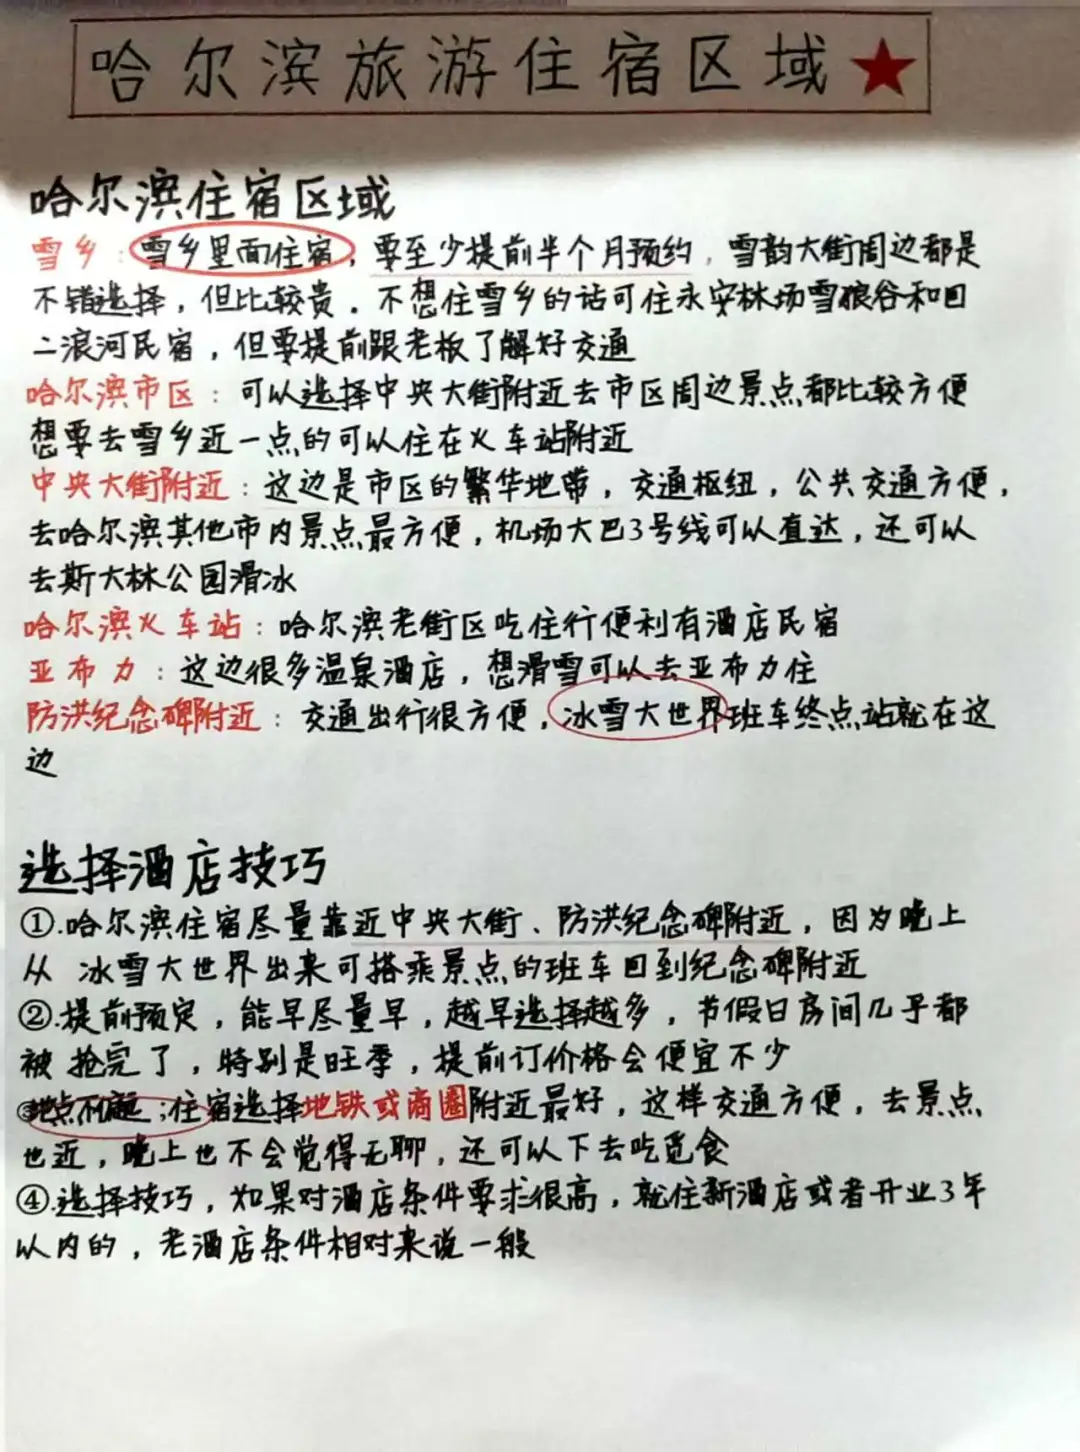 哈尔滨旅游住宿区域
哈尔滨住宿区域
雪乡：雪乡里面住宿，要至少提前半个月预约，雪韵大街周边都是
不错选择，但比较贵。不想住雪乡的话可住永安林场雪狼谷和日
二浪河民宿，但要提前跟老板了解好交通
哈尔滨市区：可以选择中央大街附近去市区周边景点都比较方便
想要去雪乡近一点的可以住在火车站附近
中央大街附近：这边是市区的繁华地带，交通枢纽，公共交通方便，
去哈尔滨其他市内景点最方便，机场大巴3号线可以直达，还可以
去斯大林公园滑冰
哈尔滨火车站：哈尔滨老街区吃住行便利有酒店民宿
亚布力：这边很多温泉酒店，想滑雪可以去亚布力住
防洪纪念碑附近：交通出行很方便，冰雪大世界班车终点站就在这
边
选择酒店技巧
①.哈尔滨住宿尽量靠近中央大街、防洪纪念碑附近，因为晚上
从 冰雪大世界出来可搭乘景点的班车回到纪念碑附近
②.提前预定，能早尽量早，越早选择越多，节假日房间几乎都
被 抢完了，特别是旺季，提前订价格会便宜不少
③地点不；住宿选择地铁或商圈附近最好，这样交通方便，去景点
也近，晚上也不会觉得无聊，还可以下去吃觅食
④.选择技巧，如果对酒店条件要求很高，就住新酒店或者开业3年
以内的，老酒店条件相对来说一般